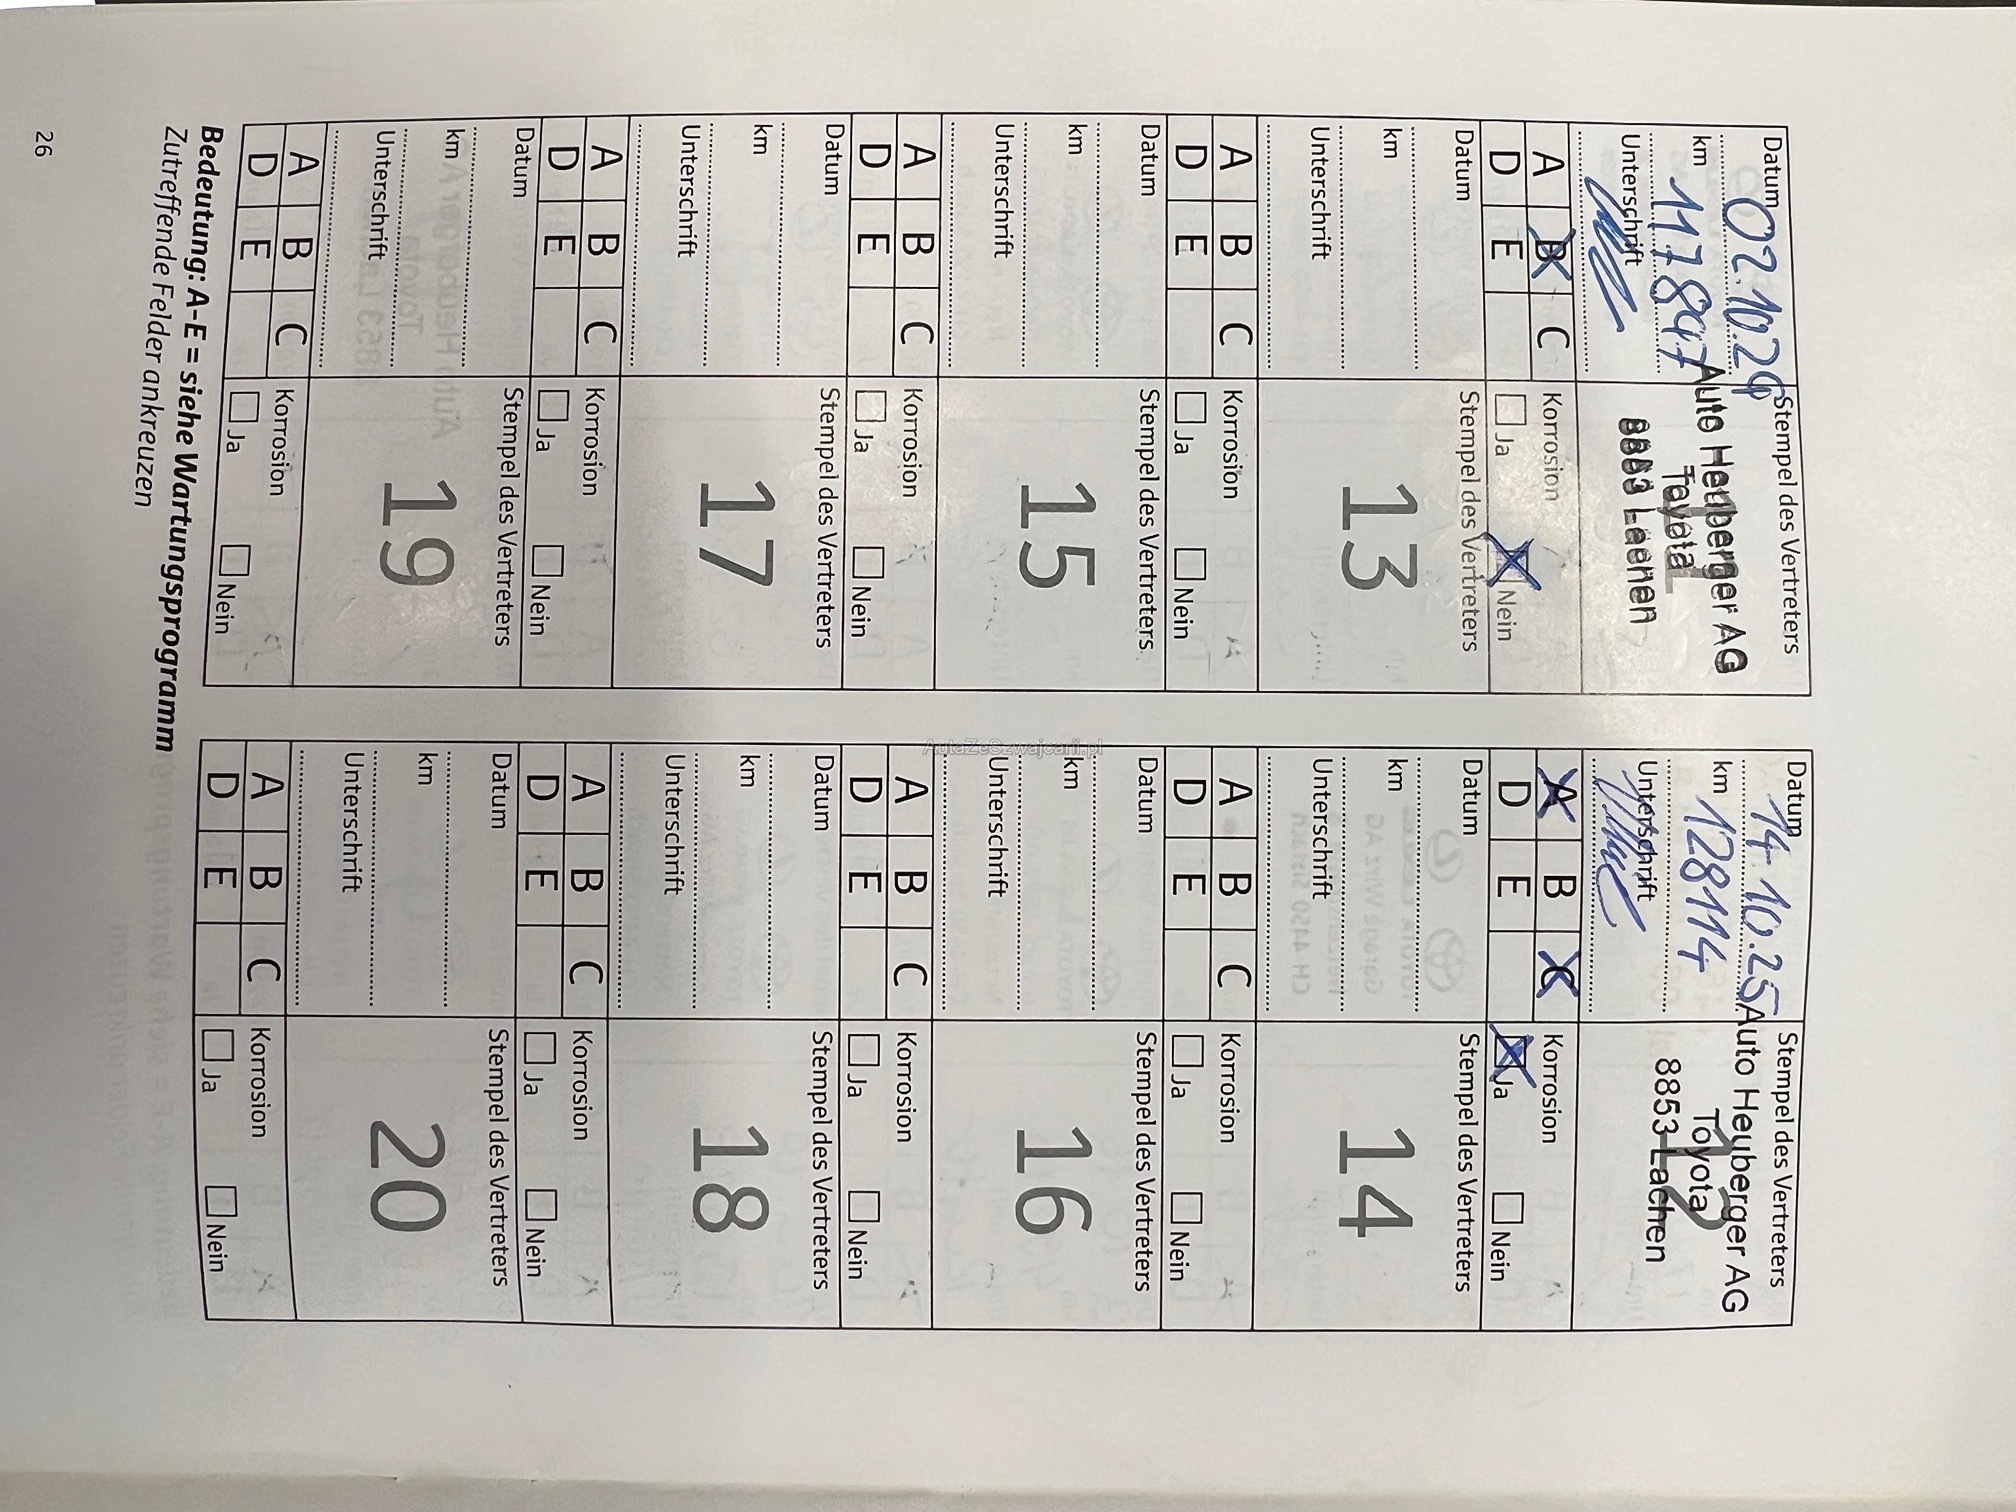 Datum 02.10.24
km 117847
Unterschrift
Stempel des Vertreters
Auto Heuberger AG
Toyota
8853 Lachen
A B C
D E
Korrosion
Ja Nein
Datum 14.10.25
km 128114
Unterschrift
Stempel des Vertreters
12
Auto Heuberger AG
Toyota
8853 Lachen
A B C
D E
Korrosion
Ja Nein
Datum
km
Unterschrift
Stempel des Vertreters
13
A B C
D E
Korrosion
Ja Nein
Datum
km
Unterschrift
Stempel des Vertreters
14
A B C
D E
Korrosion
Ja Nein
Datum
km
Unterschrift
Stempel des Vertreters
15
A B C
D E
Korrosion
Ja Nein
Datum
km
Unterschrift
Stempel des Vertreters
16
A B C
D E
Korrosion
Ja Nein
Datum
km
Unterschrift
Stempel des Vertreters
17
A B C
D E
Korrosion
Ja Nein
Datum
km
Unterschrift
Stempel des Vertreters
18
A B C
D E
Korrosion
Ja Nein
Datum
km
Unterschrift
Stempel des Vertreters
19
A B C
D E
Korrosion
Ja Nein
Datum
km
Unterschrift
Stempel des Vertreters
20
A B C
D E
Korrosion
Ja Nein
Bedeutung: A-E = siehe Wartungsprogramm
Zutreffende Felder ankreuzen
26
AutaZeSzwajcarii.pl